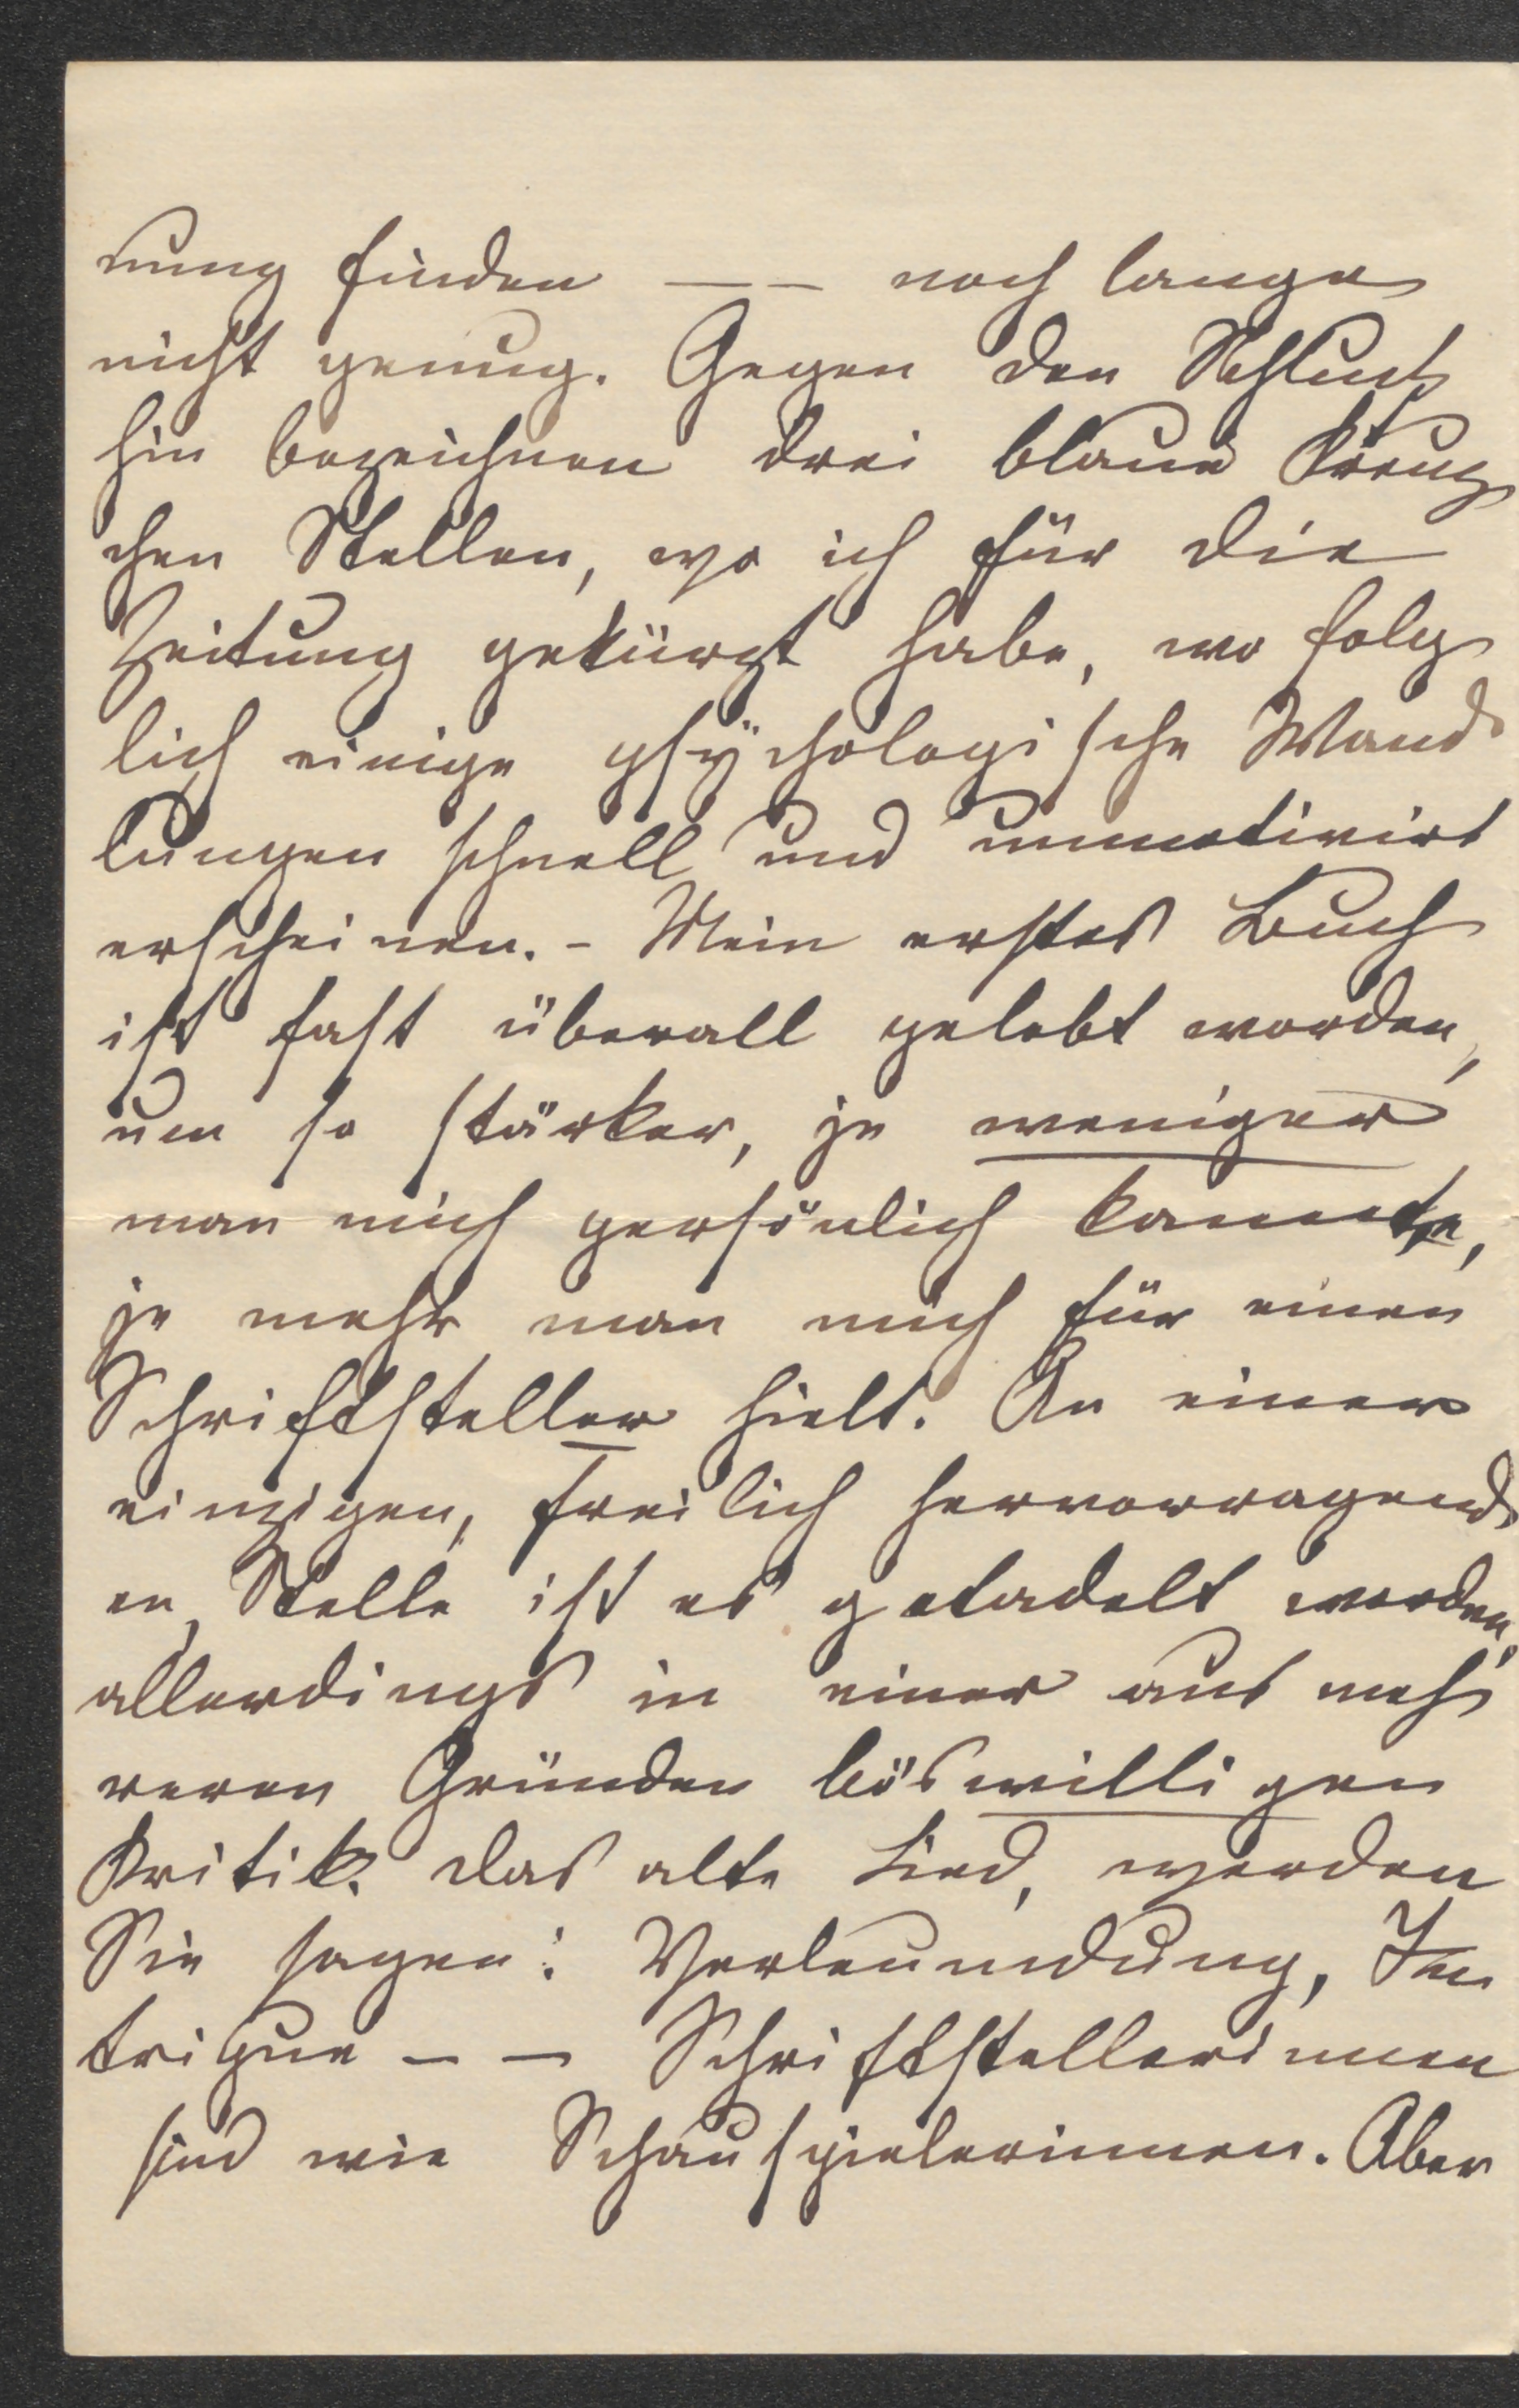 nung finden — — noch lange
nicht genug. Gegen den Schluß
hin bezeichnen drei blaue Kreuz
chen Stellen, wo ich für die
Zeitung gekürzt habe, wo folg
lich einige psÿchologische Wand
lungen schnell und unmotivirt
erscheinen. – Mein erstes Buch
ist fast überall gelobt worden,
um so stärker, je weniger
man mich persönlich kannte,
je mehr man mich für einen
Schriftsteller hielt. An einer
einzigen, freilich hervorragend
en, Stelle ist es getadelt worden,
allerdings in einer aus meh
reren Gründen böswilligen
Kritik. Das alte Lied, werden
Sie sagen: Verleumdung, In
trigue – – Schriftstellerinnen
sind wie Schauspielerinnen. Aber